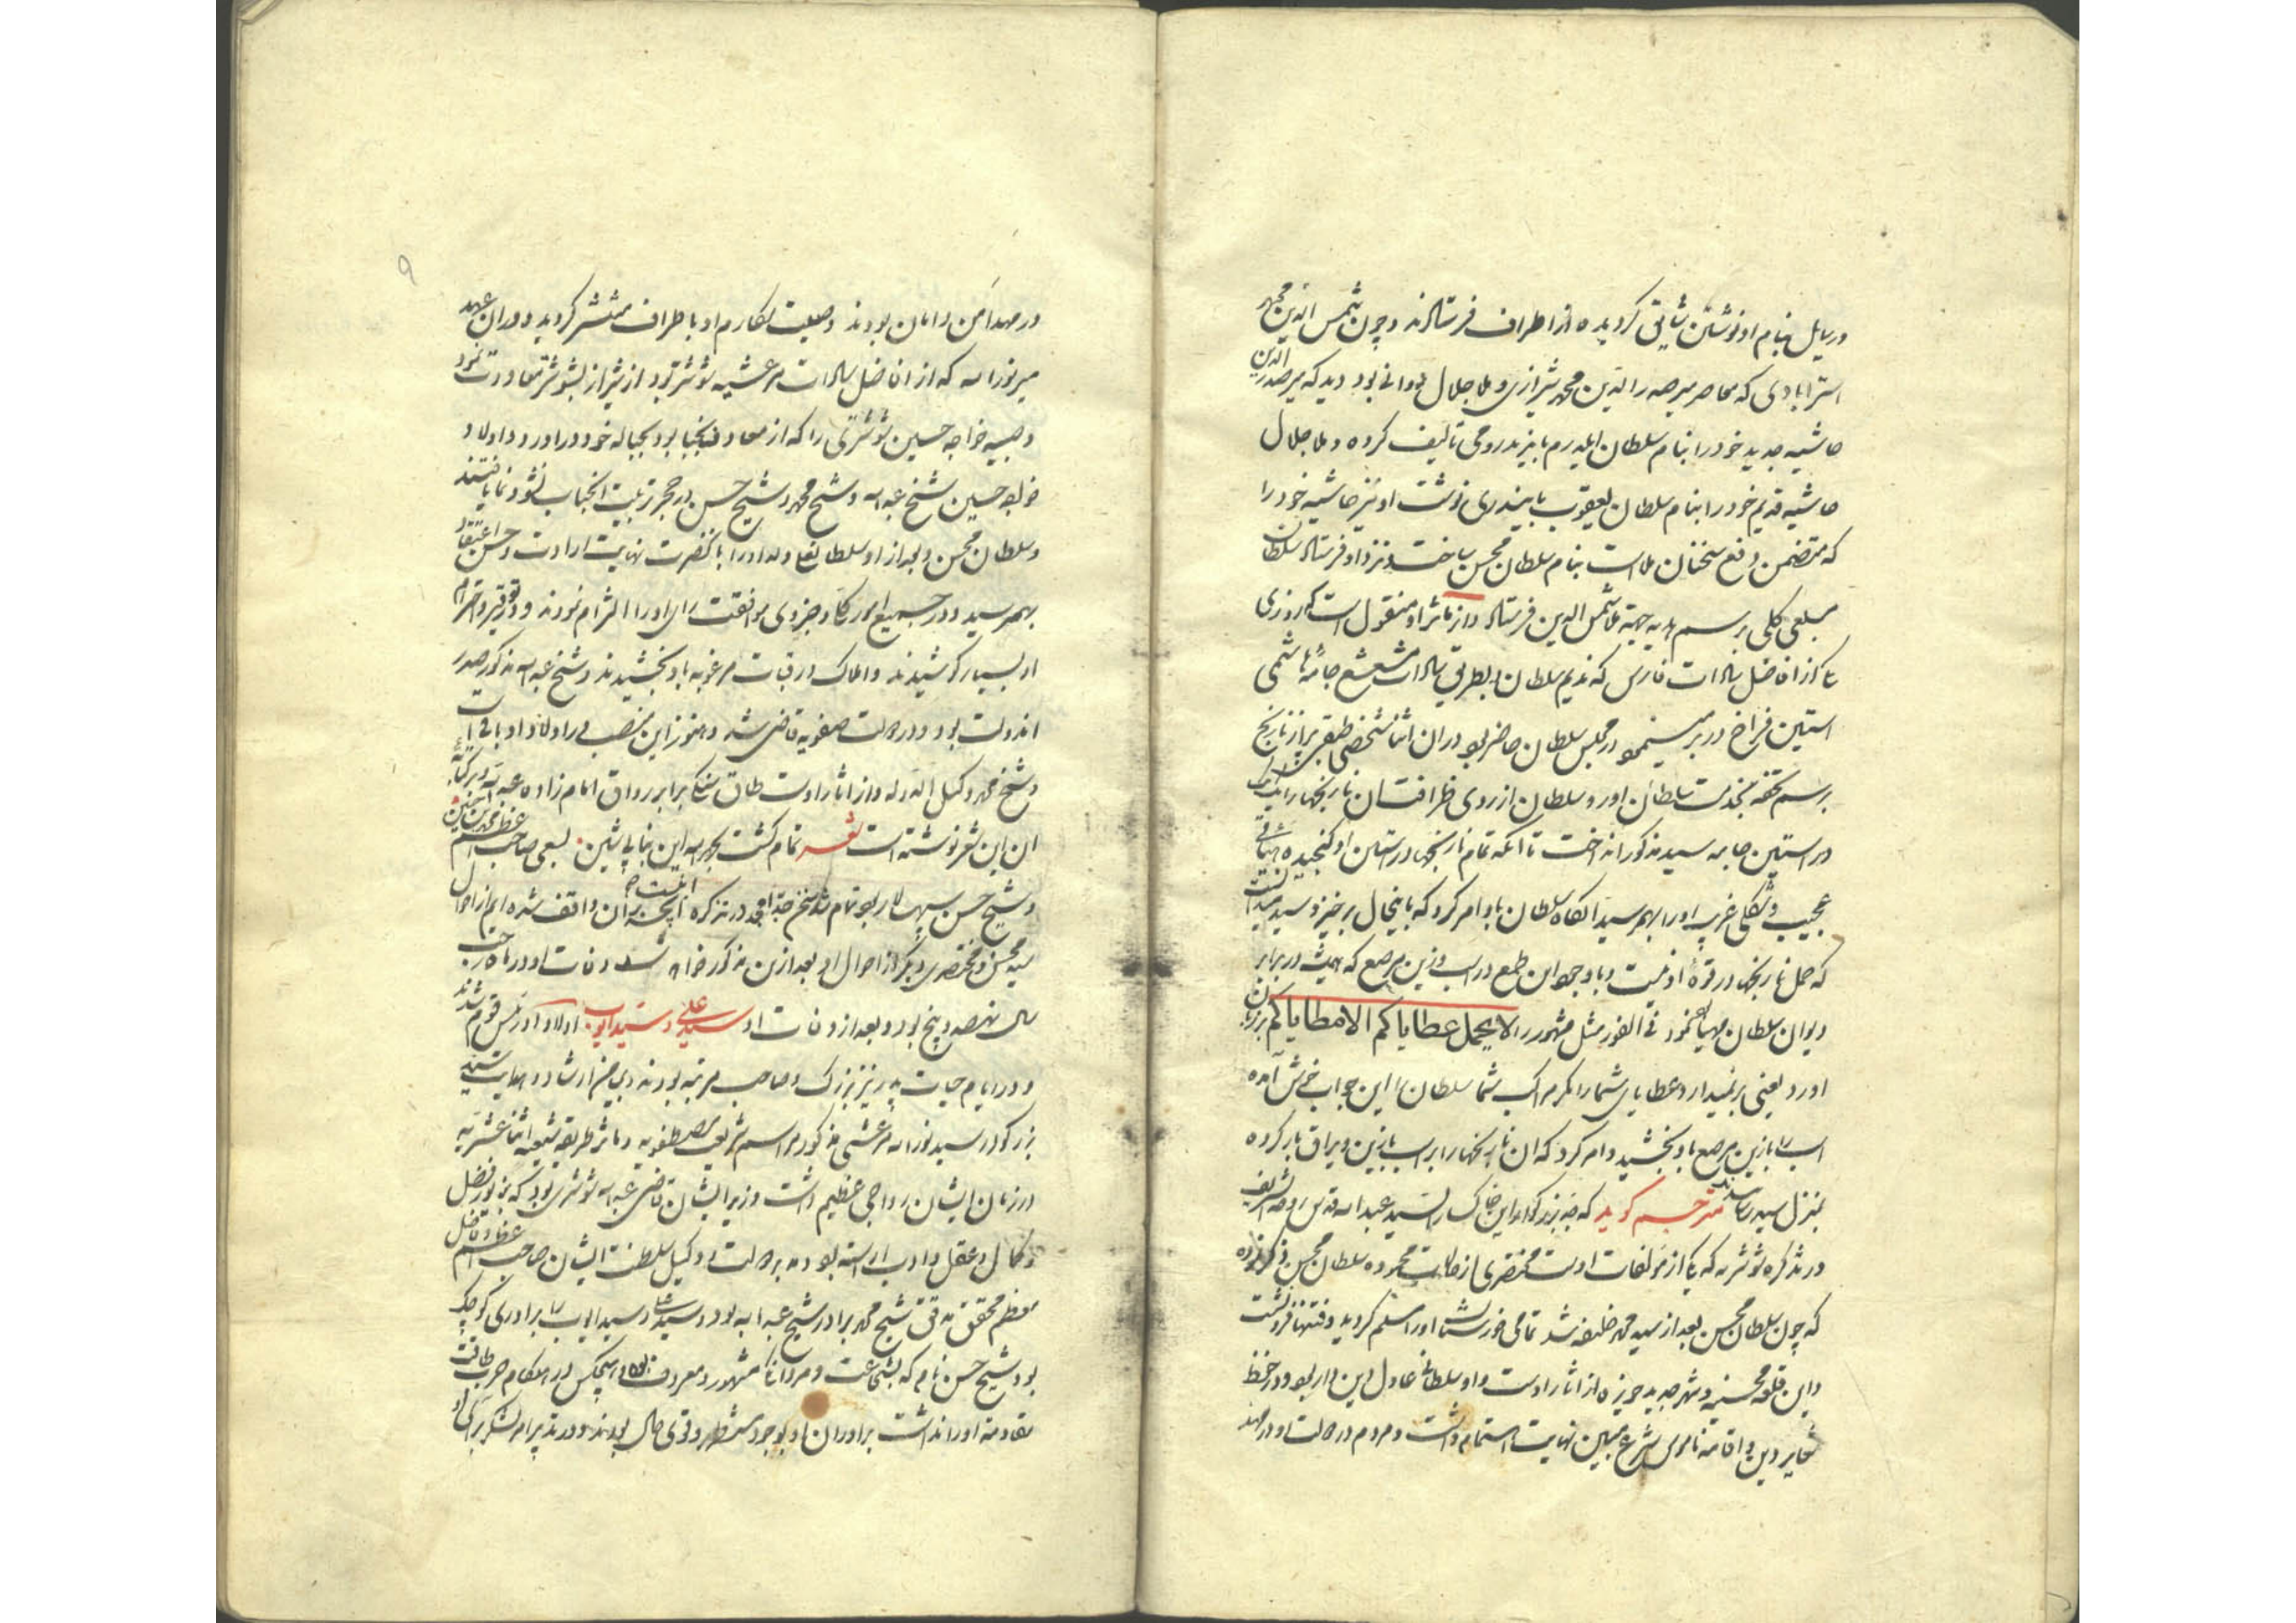 ورسایل بنام او نوشتن شایع گردیده از اطراف فرستادند و چون شمس الدین محمد
استرابادی که معاصر میر صدر الدین محمد شیرازی و ملا جلال دوانی بود دید که میر صدر الدین
حاشیه جدید خود را بنام سلطان ایلدرم بایزید رومی تألیف کرده و ملا جلال
حاشیه قدیم خود را بنام سلطان یعقوب بایندری نوشت او نیز حاشیه خود را
که متضمن دفع سخنان ملا است بنام سلطان محسن ساخت و نزد او فرستاد سلطان
مبلغی کلی برسم هدیه جهة ملا شمس الدین فرستاد و از مآثر او منقول است که روزی
یکی از افاضل سادات فارس که ندیم سلطان و بطریق سادات مشعشع جامهٔ
استین فراخ در بر در مجلس سلطان حاضر بود در ان اثنا شخصی طبقی پر از نارنج
برسم تحفه بخدمت سلطان اورد و سلطان از روی ظرافت ان نارنجها را یک یک
در استین جامه سید مذکور انداخت تا انکه تمام نارنجها در استین او گنجیده هیئاتی
عجیب و شکلی غریب او را بهم رسید انگاه سلطان باو امر کرد که باینحال برخیز و سید میدانست
که حمل نارنجها در قوهٔ او نیست و با وجود این طمع در اسب و زین مرصع که همیشه در برابر
دیوان سلطان مهیا نمود فی الفور مثل مشهور را لا یحمل عطایاکم الا مطایاکم بر زبان
اورد یعنی برنمیدارد عطایای شما را مگر مراکب شما سلطان را این جواب خوش آمده
اسب را با زین مرصع باو بخشید و امر کرد که ان نارنجها را بر اسب با زین و یراق بار کرده
بمنزل سید رسانیدند مترجم گوید که جد بزرگوار این خاکسار السید عبد الله قدس روحه الشریف
در تذکره شوشتر که یکی از مؤلفات اوست مختصری از حالات محموده سلطان محسن ذکر فرموده
که چون سلطان محسن بعد از سید محمد خلیفه شد تمامی خوزستان او را مسلم گردید و فتنها فرو نشست
و این قلعه محسنیه و شهر جدید حویزه از اثار اوست و او سلطانی عادل دین دار بود و در حفظ
شعایر دین و اقامه ناموس شرع مبین نهایت اهتمام داشت و مردم در دولت او در مهد
در مهد امن و امان بودند وصیت مکارم او باطراف منتشر گردید و در ان عهد
میر نور الله که از افاضل سادات مرعشیه شوشتر بود از شیراز بشوشتر معاودت نمود
و صبیه خواجه حسین شوشتری را که از معارف نجبا بود بحباله خود در اورد و اولاد
خواجه حسین شیخ عبد الله و شیخ محمد و شیخ حسن در حجر تربیت انجناب نشو و نما یافتند
و سلطان محسن و بعد از او سلطان علی ولد او را با انحضرت نهایت ارادت و حسن اعتقاد
بهم رسید و در جمیع امور کلی و جزوی موافقت رای او را التزام نمودند و در توقیر و احترام
او بسیار کوشیدند و املاک و رقبات مرغوبه باو بخشیدند و شیخ عبد الله مذکور صدر
اندولت بود و در دولت صفویه قاضی شد و هنوز این منصب در اولاد او باقی است
و شیخ محمد وکیل الدوله و از اثار اوست طاق سنگی برابر رواق امام زاده عبد الله
ان این شعر نوشته است شعر تمام گشت بحمد الله این بنای متین بسعی صاحب اعظم
و شیخ حسن سپه سالار بود تمام شد سخن جد امجد در تذکره انچه بر ان واقف شده ایم از احوال
سید محسن و مختصری دیگر از احوال او بعد ازین مذکور خواهد شد وفات او در ماه رجب
سال نهصد و پنج بود و بعد از وفات او سید علی و سید ایوب اولاد او رئیس قوم شدند
و در ایام حیات پدر نیز بزرگ و صاحب مرتبه بودند و بیمن ارشاد و هدایت سید
بزرگوار سید نور الله مرعشی مذکور مراسم شریعت مصطفویه و مآثر طریقه شیعه اثنا عشریه
در زمان ایشان رواجی عظیم داشت و وزیر ایشان قاضی عبد الله شوشتری بود که بزیور فضل
و کمال و عقل و ادب اراسته بود و مدبر دولت و وکیل سلطنت ایشان صاحب اعظم
معظم محقق مدقق شیخ محمد برادر شیخ عبد الله بود و سید علی و سید ایوب را برادری کوچک
بود شیخ حسن نام که بشجاعت و مردانگی مشهور و معروف بود و هیچکس در هنگام حرب طاقت
مقاومة او را نداشت برادران او بوجودش مستظهر و قوی حال بودند و در تدبیر امر لشکر برای او